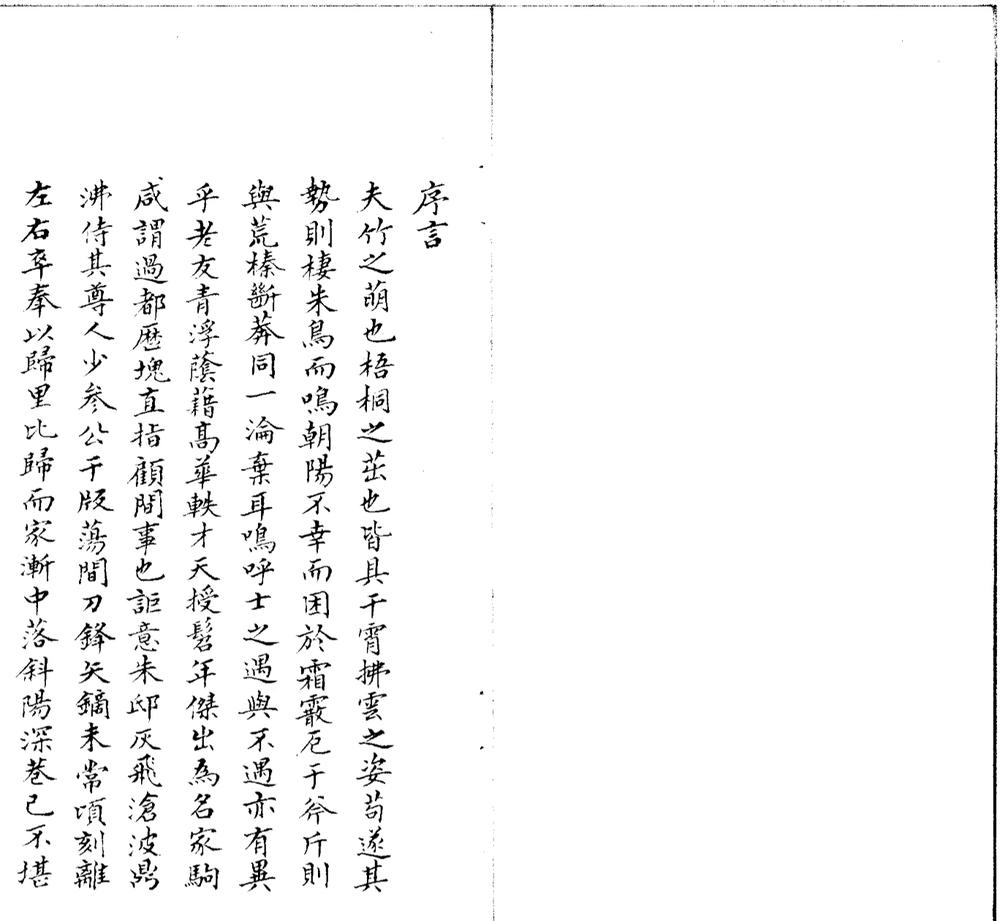 序言
夫竹之萌也梧桐之茁也皆具干霄拂雲之姿苟遂其
勢則棲朱鳥而鳴朝陽不幸而困於霜霰厄于斧斤則
與荒榛斷莽同一淪棄耳嗚呼士之遇與不遇亦有異
乎老友青浮蔭藉高華軼才天授髫年傑出為名家駒
咸謂過都歷塊直指顧間事也詎意朱邸灰飛滄波鼎
沸侍其尊人少參公于版蕩間刀鋒矢鏑未常頃刻離
左右卒奉以歸里比歸而家漸中落斜陽深巷已不堪